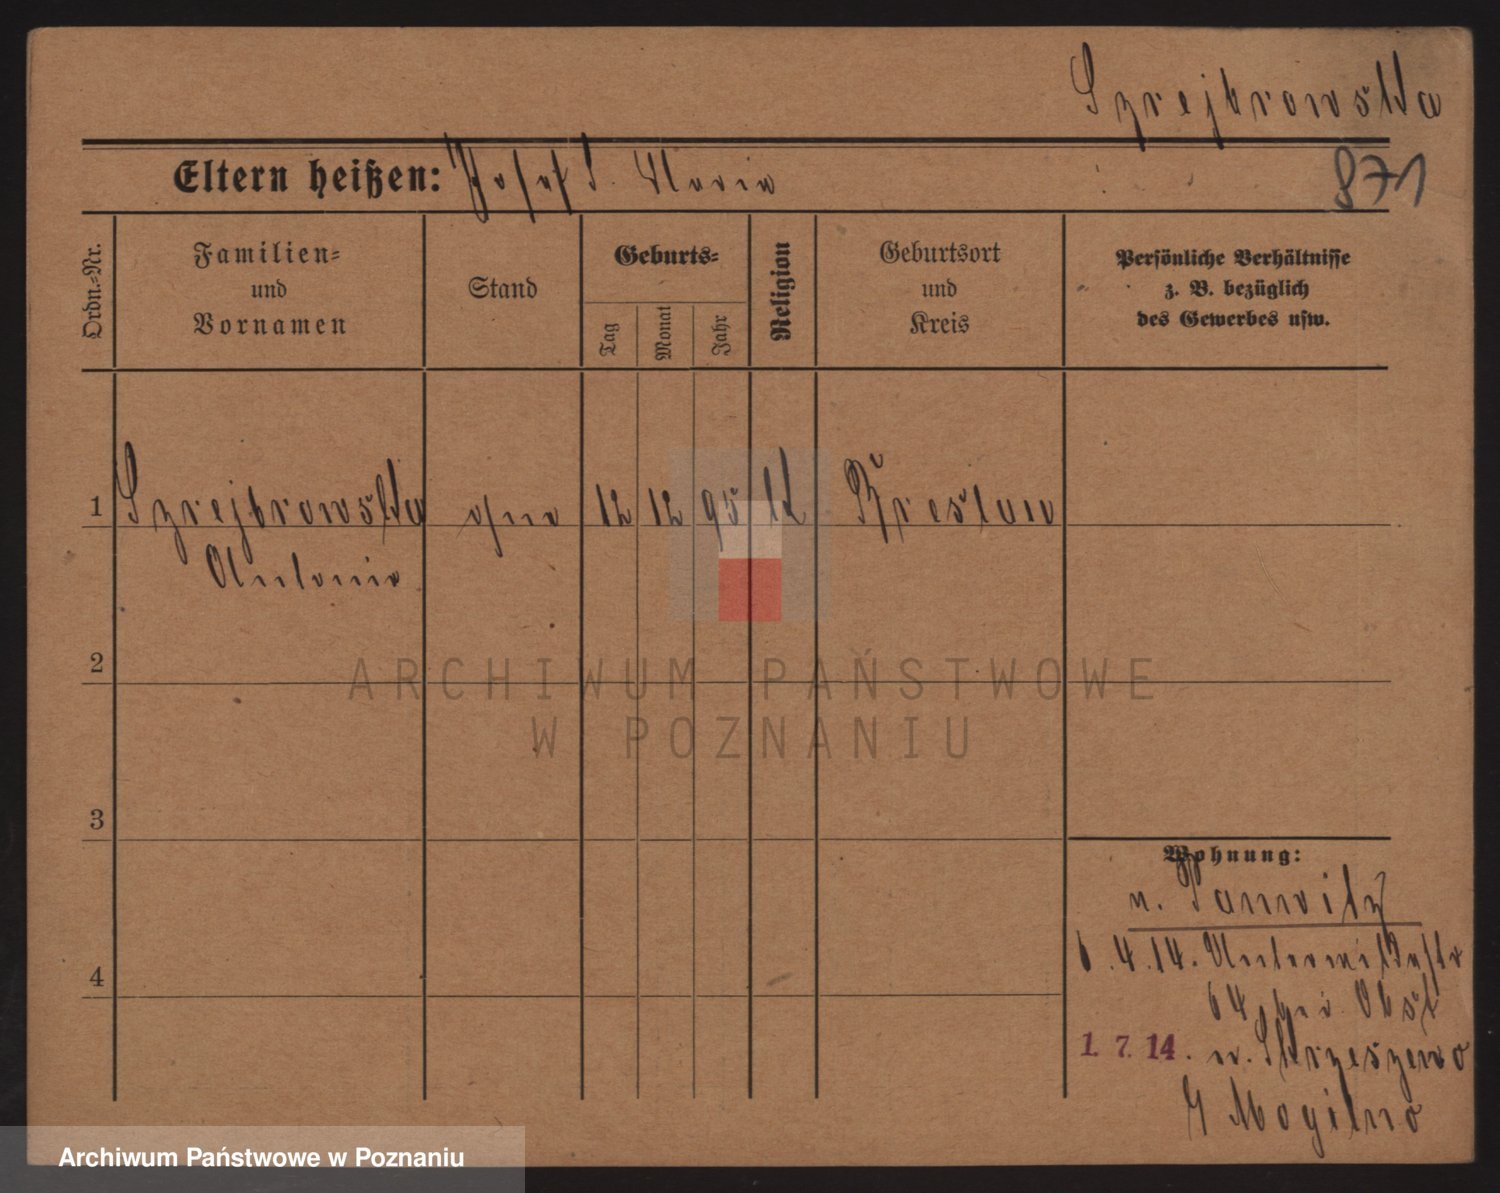 Szrejbrowska
Eltern heißen: Josef S. Maria
871
Ordn.-Nr.
Familien-
und
Vornamen
Stand
Geburts-
Tag
Monat
Jahr
Religion
Geburtsort
und
Kreis
Persönliche Verhältnisse
z. B. bezüglich
des Gewerbes usw.
1 Szrejbrowska ohne 12 12 95 k Breslau
Antonie
2
3
4
Wohnung:
n. Pannvitz
6.4.14. Unterwildastr
64 bei Obst
1. 7. 14. n. Skrzeszewo
Mogilno
ARCHIWUM PAŃSTWOWE
W POZNANIU
Archiwum Państwowe w Poznaniu